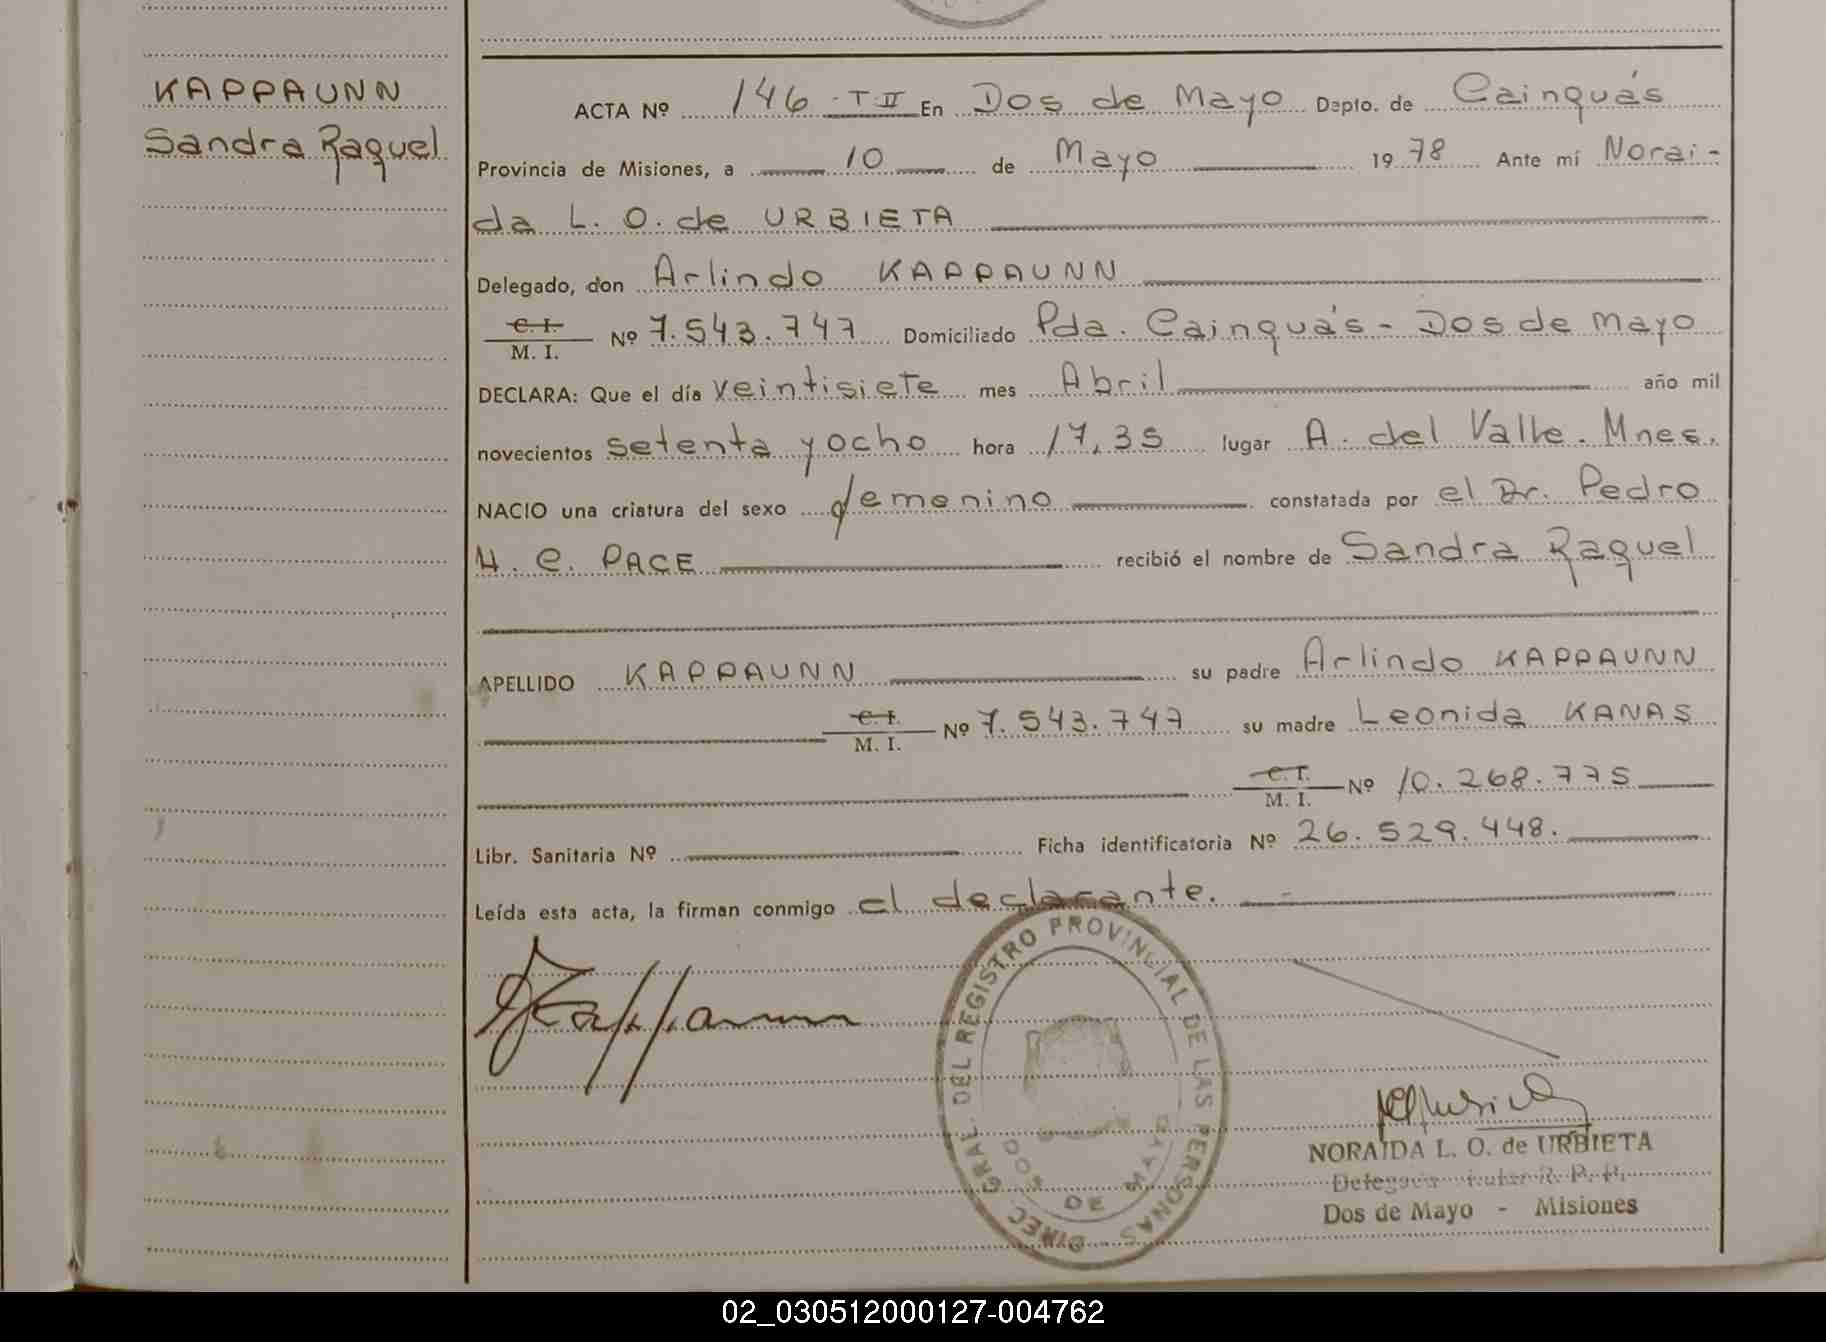 KAPPAUNN
Sandra Raquel
ACTA Nº 146 - T II En Dos de Mayo Depto. de Cainguás
Provincia de Misiones, a 10 de Mayo 1978 Ante mí Norai-
da L. O. de URBIETA
Delegado, don Arlindo KAPPAUNN
C. I.
M. I. Nº 7.543.747 Domiciliado Pda. Cainguás - Dos de Mayo
DECLARA: Que el día veintisiete mes Abril año mil
novecientos setenta y ocho hora 17,35 lugar A. del Valle. Mnes.
NACIO una criatura del sexo femenino constatada por el Dr. Pedro
H. C. PACE recibió el nombre de Sandra Raquel
APELLIDO KAPPAUNN su padre Arlindo KAPPAUNN
C. I.
M. I. Nº 7.543.747 su madre Leonida KANAS
C. I.
M. I. Nº 10.268.775
Libr. Sanitaria Nº Ficha identificatoria Nº 26.529.448.
Leída esta acta, la firman conmigo el declarante. -
Kappaunn
DIREC. GRAL. DEL REGISTRO PROVINCIAL DE LAS PERSONAS
DOS DE MAYO
NORAIDA L. O. de URBIETA
R. P. P.
Dos de Mayo - Misiones
02_030512000127-004762